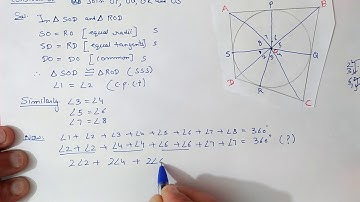 Join OP, OQ, OR and OS
In △ SOD and △ ROD
SO = RO [equal radii] S
SD = RD [equal tangents] S
DO = DO [common] S
∴ △SOD ≅ △ROD (SSS)
∠1 = ∠2 (c.p.c.t)
Similarly ∠3 = ∠4
∠5 = ∠6
∠7 = ∠8
Now:
∠1 + ∠2 + ∠3 + ∠4 + ∠5 + ∠6 + ∠7 + ∠8 = 360°
∠2 + ∠2 + ∠4 + ∠4 + ∠6 + ∠6 + ∠7 + ∠7 = 360° (?)
2∠2 + 2∠4 + 2∠6
A P B
S Q
D R C